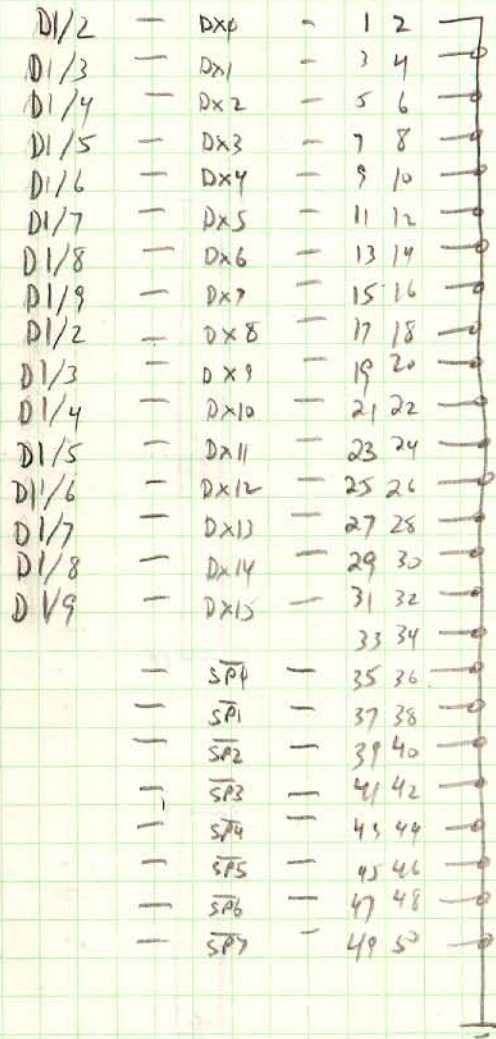 D1/2 — DX0 — 1 2
D1/3 — DX1 — 3 4
D1/4 — DX2 — 5 6
D1/5 — DX3 — 7 8
D1/6 — DX4 — 9 10
D1/7 — DX5 — 11 12
D1/8 — DX6 — 13 14
D1/9 — DX7 — 15 16
D1/2 — DX8 — 17 18
D1/3 — DX9 — 19 20
D1/4 — DX10 — 21 22
D1/5 — DX11 — 23 24
D1/6 — DX12 — 25 26
D1/7 — DX13 — 27 28
D1/8 — DX14 — 29 30
D1/9 — DX15 — 31 32
33 34
— S̅P̅0̅ — 35 36
— S̅P̅1̅ — 37 38
— S̅P̅2̅ — 39 40
— S̅P̅3̅ — 41 42
— S̅P̅4̅ — 43 44
— S̅P̅5̅ — 45 46
— S̅P̅6̅ — 47 48
— S̅P̅7̅ — 49 50